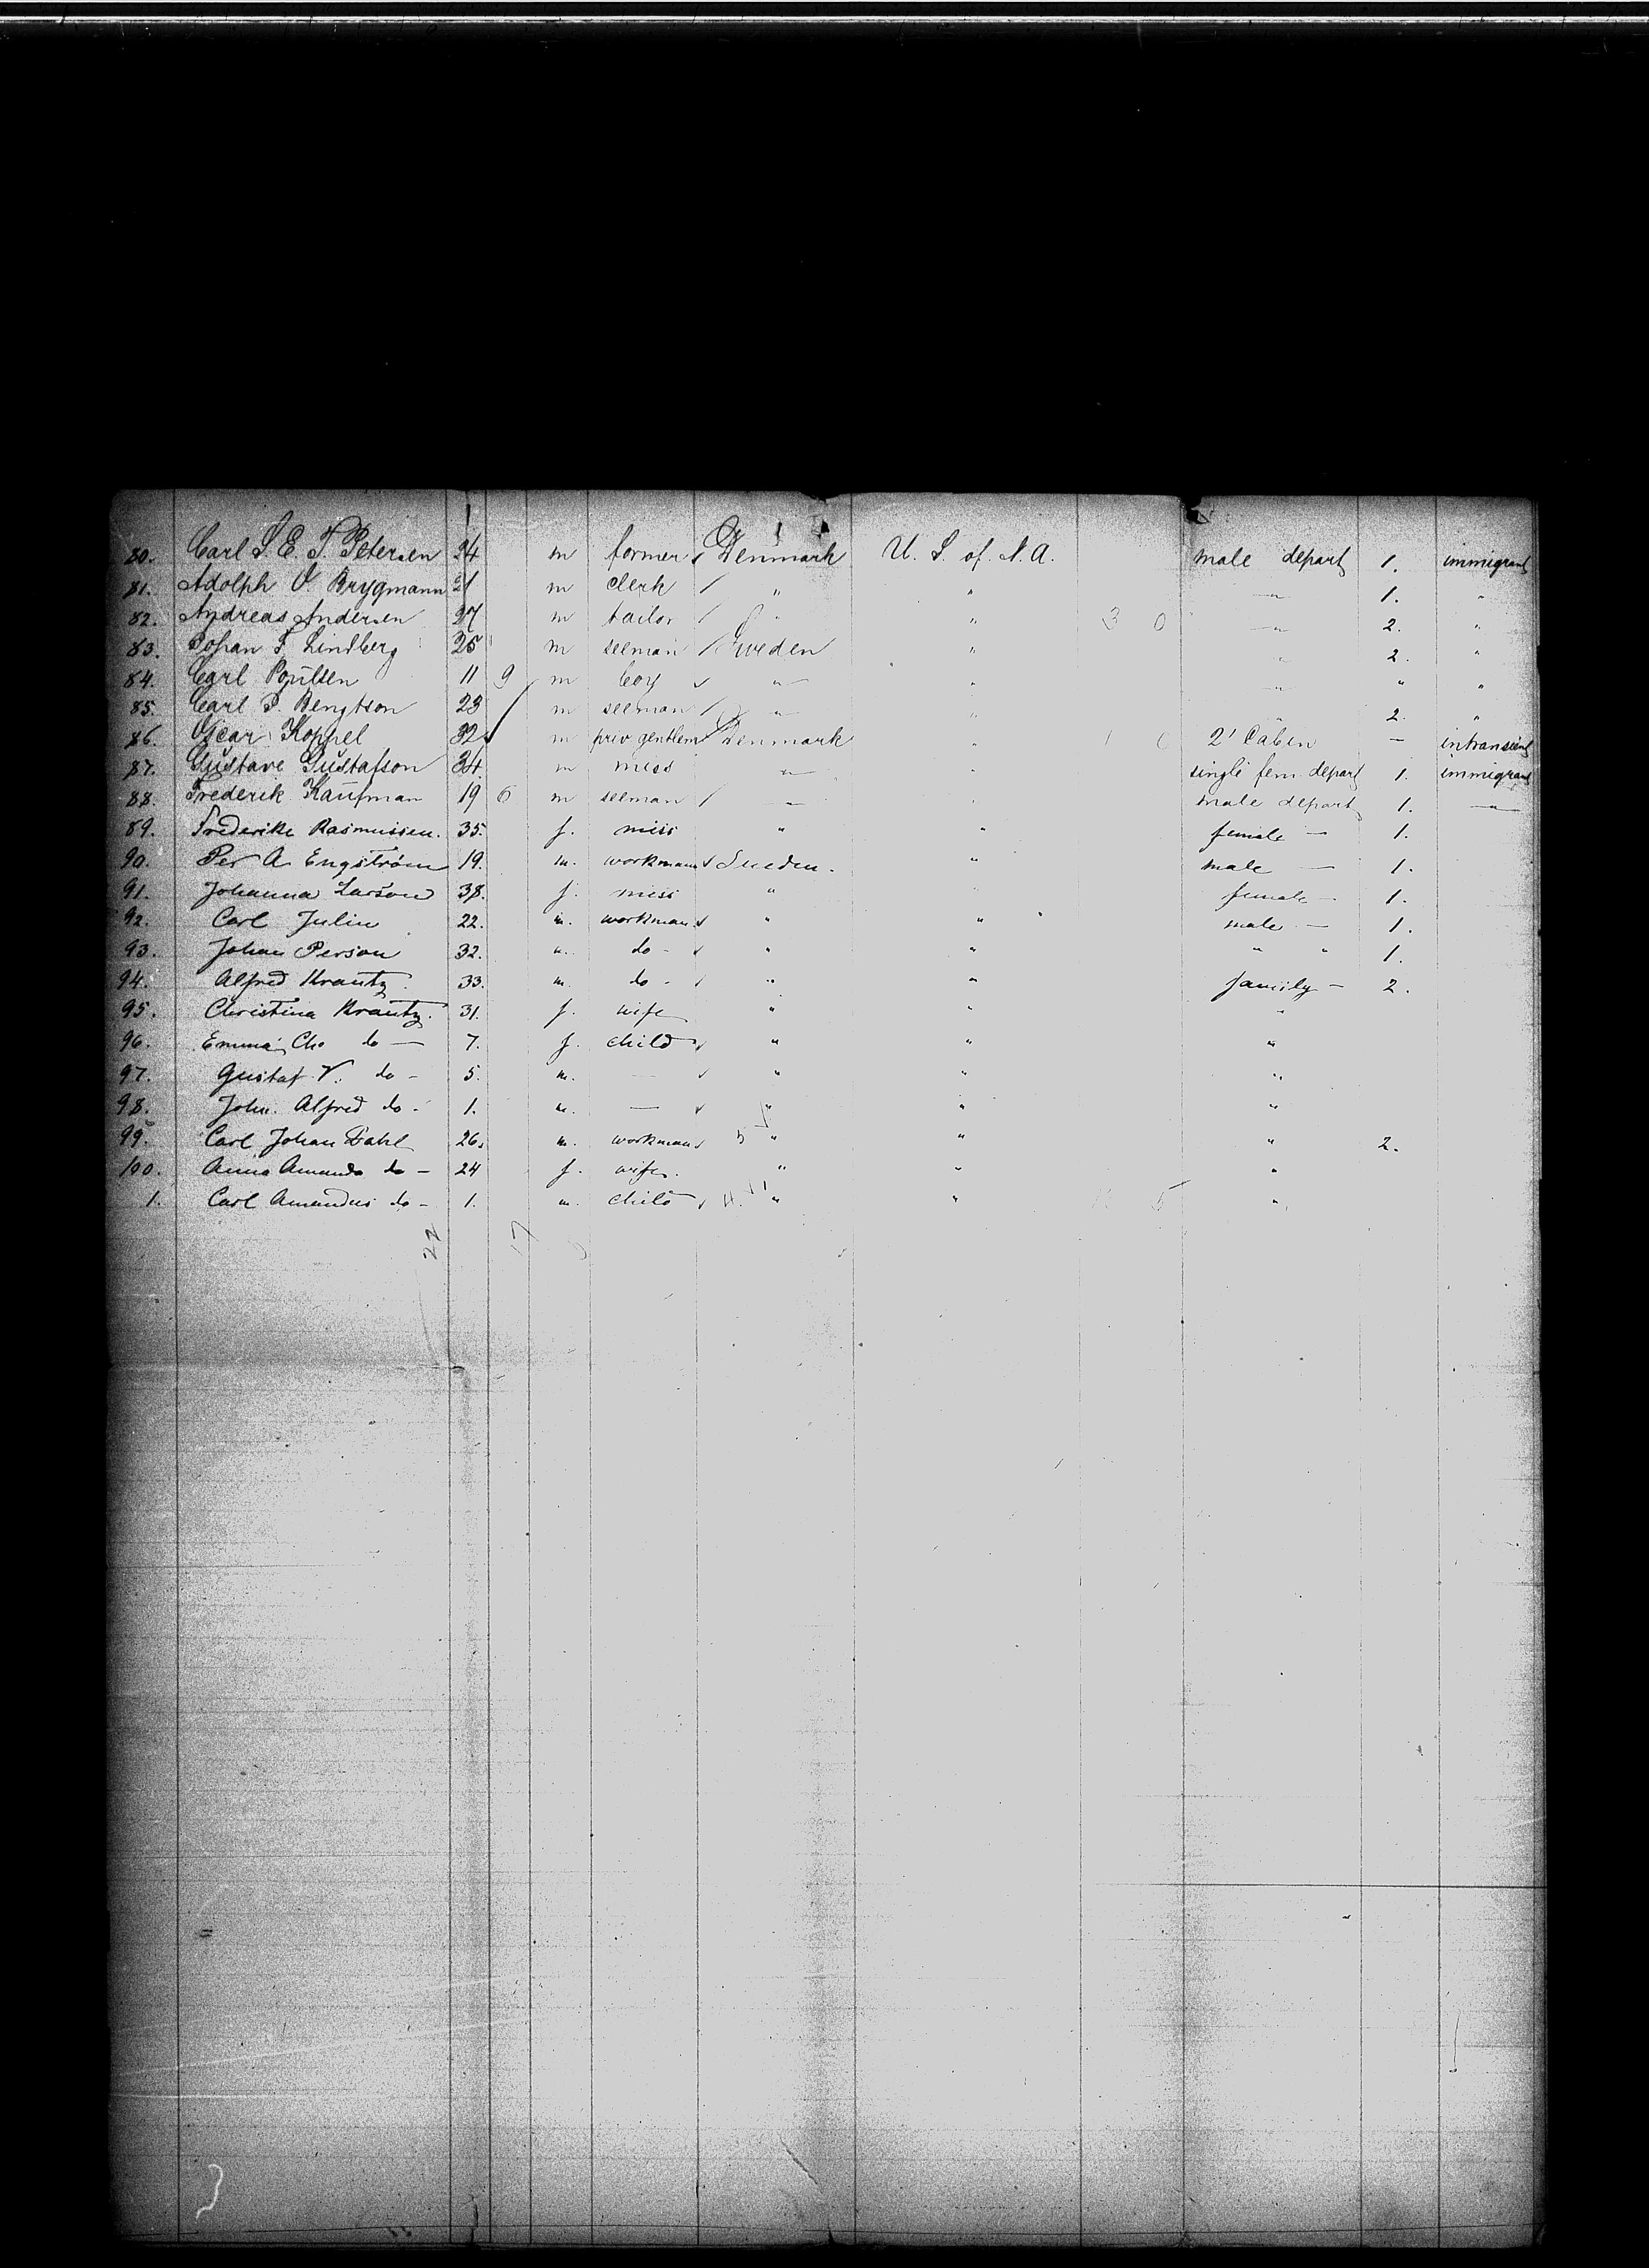 80. Carl S. E. T. Petersen 24 m former Denmark U. S. of. N. A. male depart 1. immigrant
81. Adolph V. Brygmann 21 m clerk / " " —"— 1. "
82. Andreas Andersen 27 m tailor / " " 3 0 —"— 2. "
83. Johan F. Lindberg 25 m seeman / Sweden " " 2. "
84. Carl Poulsen 11 9 m boy —"— " —"— " "
85. Carl P. Bengtson 23 m seeman / —"— " " 2. "
86. Oscar Koppel 32 m priv gentlem Denmark " 2' Cabin — intransient
87. Gustave Gustafson 34 m miss —"— " single fem. depart 1. immigrant
88. Frederik Kaufman 19 6 m seeman / —"— " male depart 1. —"—
89. Frederike Rasmussen. 35. f. miss " " female — 1.
90. Per A. Engström 19. m. workman Sweden. " male — 1.
91. Johanna Larson 38. f. miss " " female — 1.
92. Carl Julin 22. m. workman " " " male — 1.
93. Johan Person 32. m. do - " " " " 1.
94. Alfred Krantz 33. m. do - " " family — 2.
95. Christina Krantz. 31. f. wife " " "
96. Emma Ch. do — 7. f. child " " "
97. Gustaf V. do - 5. m. — " " "
98. John. Alfred do - 1. m. — " " "
99. Carl Johan Dahl 26. m. workman " " " 2.
100. Anna Amanda do - 24 f. wife. " " "
1. Carl Amandus do - 1. m. child " " 5 "
22 17